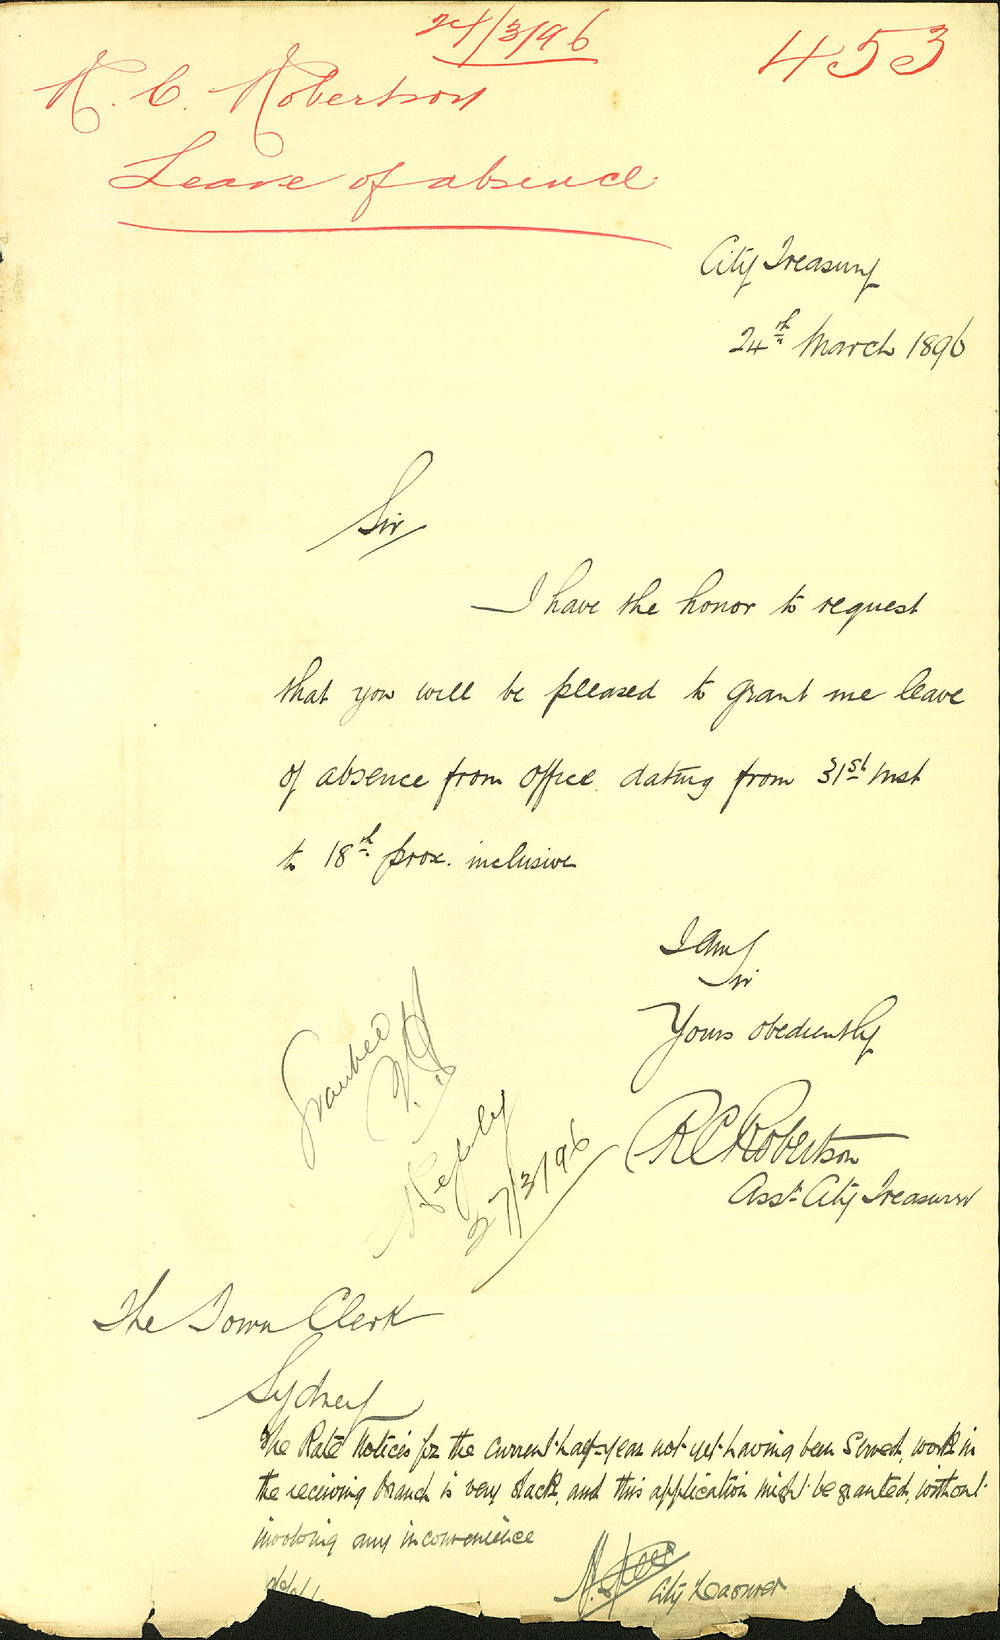 24/3/96
453
R. C. Robertson
Leave of absence
City Treasury
24th March 1896
Sir
I have the honor to request
that you will be pleased to grant me leave
of absence from office dating from 31st inst
to 18th prox. inclusive
I am
Sir
Yours obediently
R C Robertson
Asst. City Treasurer
Granted
Reply
27/3/96
The Town Clerk
Sydney
The Rate Notices for the current half-year not yet having been served, work in
the receiving branch is very slack, and this application might be granted, without
involving any inconvenience
City Treasurer